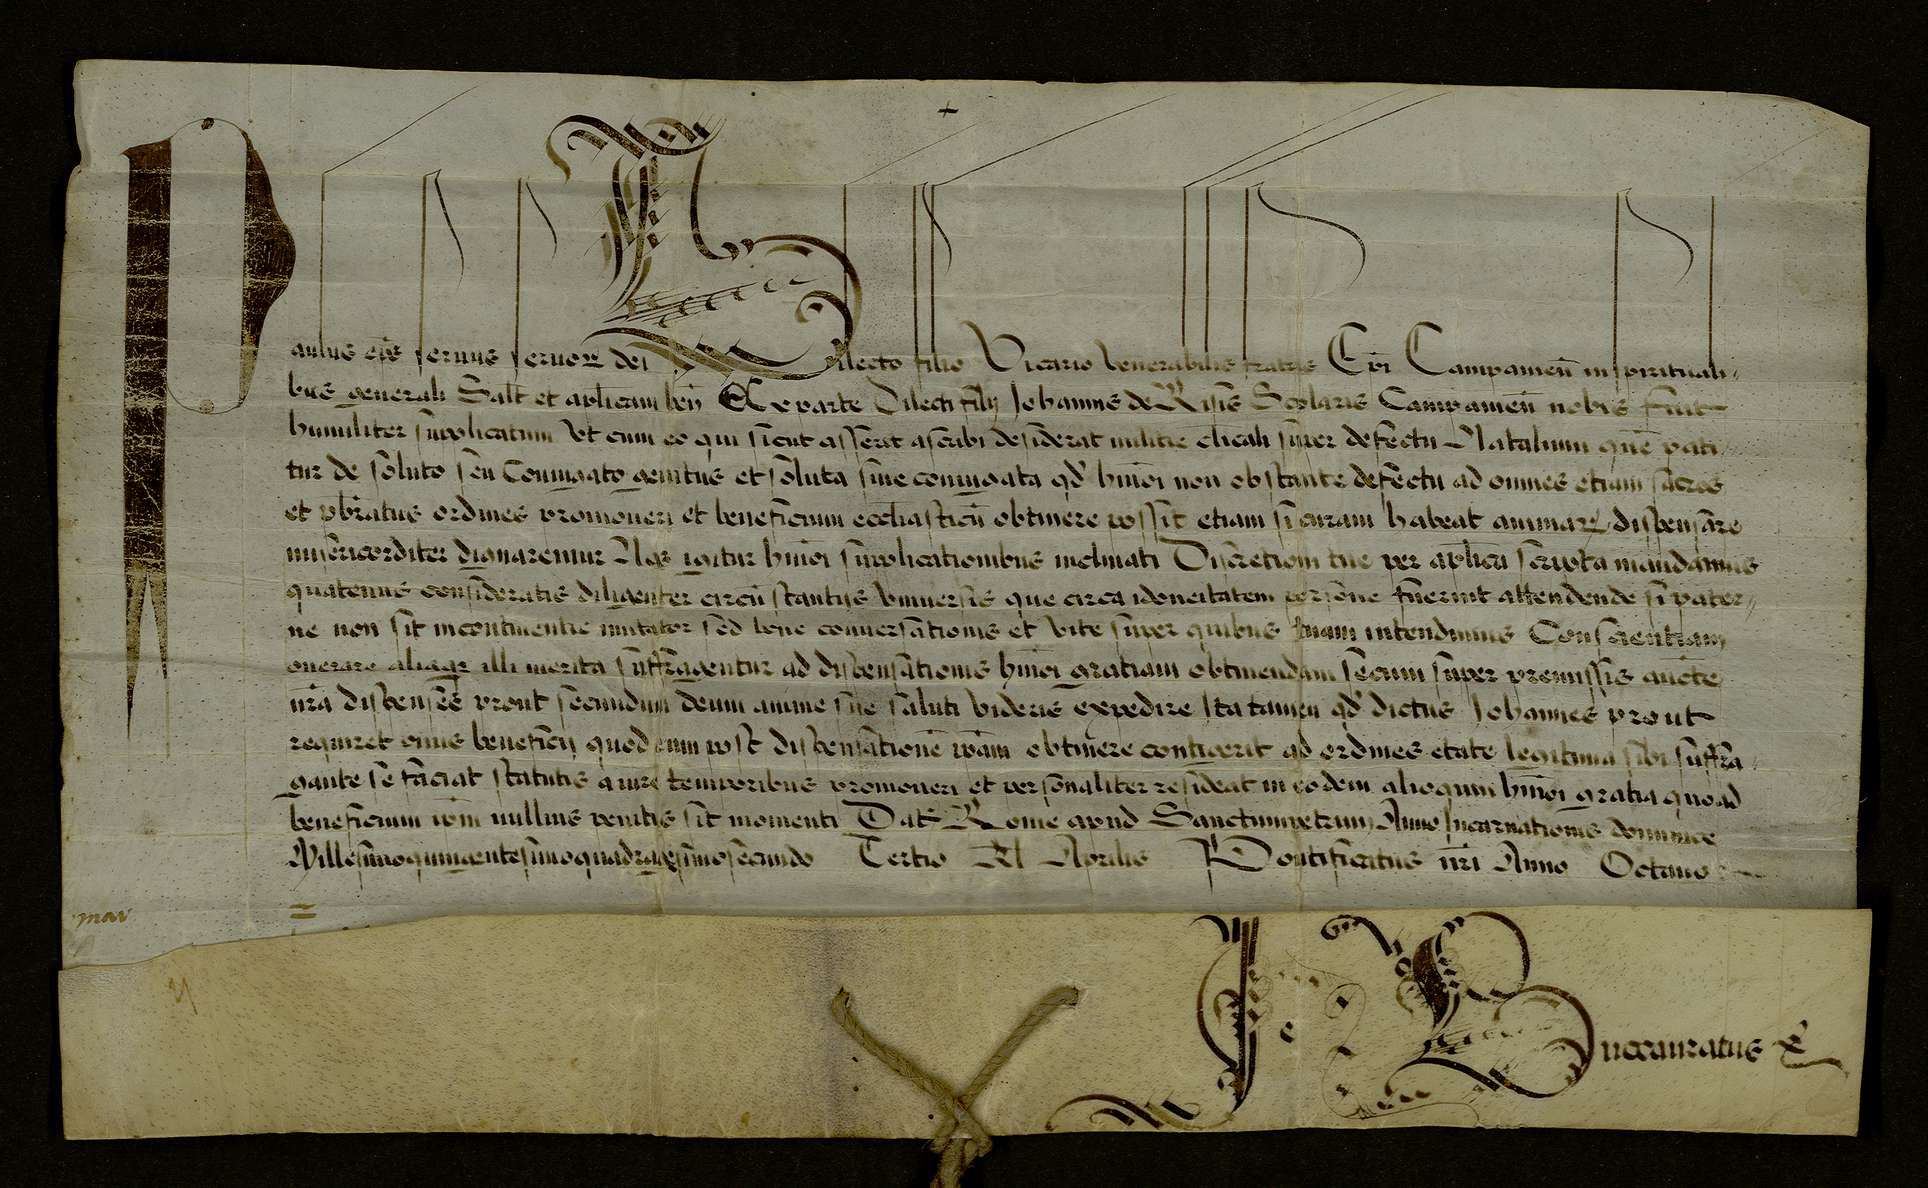 Paulus eps seruus seruor dei Dilecto filio Vicario Venerabilis fratris Epi Campanien in spirituali-
bus generali Salt et aplicam ben Ex parte Dilecti filij Johannis de Scolaris Campanien nobis fuit
humiliter supplicatum Vt cum eo qui sicut asserit ascribi desiderat militie clicali super defectu Natalium que pati
tur de soluto seu Coniugato genitus et soluta siue coniugata qd hmoi non obstante defectu ad omnes etiam sacros
et pbratus ordines promoueri et beneficium ecclesiasticu obtinere possit etiam si curam habeat animar dispensare
misericorditer dignaremur Nos igitur hmoi supplicationibus inclinati Discretioni tue per aplica scripta mandamus
quatenus consideratis diligenter circustantijs Vniuersis que circa idoneitatem persone fuerint attendende si pater-
ne non sit incontinentie imitator sed bone conuersationis et Vite super quibus tuam intendimus Conscientiam
onerare aliaqz illi merita suffragentur ad dispensationis hmoi gratiam obtinendam secum super premissis aucte
nra dispenses prout secundum deum anime sue saluti Videris expedire Ita tamen qd dictus Johannes prout
requiret onus beneficij quod eum post dispensatione ipam obtinere contigerit ad ordines etate legitima sibi suffra-
gante se faciat statutis a iure temporibus promoueri et personaliter resideat in eodem alioquin hmoi gratia quoad
beneficium ipm nullius penitus sit momenti Dat Rome apud Sanctumpetrum Anno Incarnationis dominice
Millesimoquingentesimoquadragesimosecundo Tertio Kl Aprilis Pontificatus nri Anno Octauo
mar
Buccauratus